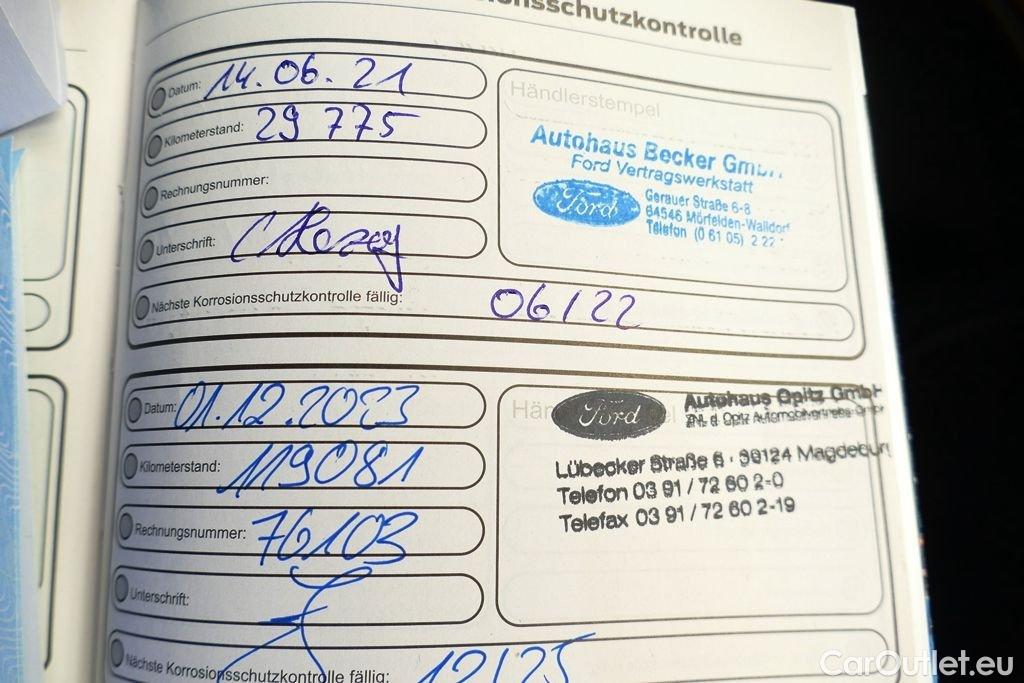 onsschutzkontrolle
Datum: 14.06.21
Kilometerstand: 29 775
Rechnungsnummer:
Unterschrift:
Nächste Korrosionsschutzkontrolle fällig: 06/22
Händlerstempel
Autohaus Becker GmbH
Ford Vertragswerkstatt
Ford
Gerauer Straße 6-8
64546 Mörfelden-Walldorf
Telefon (0 61 05) 2 22
Datum: 01.12.2023
Kilometerstand: 119081
Rechnungsnummer: 76103
Unterschrift:
Nächste Korrosionsschutzkontrolle fällig: 12/25
Ford
Autohaus Opitz GmbH
ZNL d. Opitz Automobilvertriebs GmbH
Lübecker Straße 8 · 39124 Magdeburg
Telefon 03 91 / 72 60 2-0
Telefax 03 91 / 72 60 2-19
CarOutlet.eu